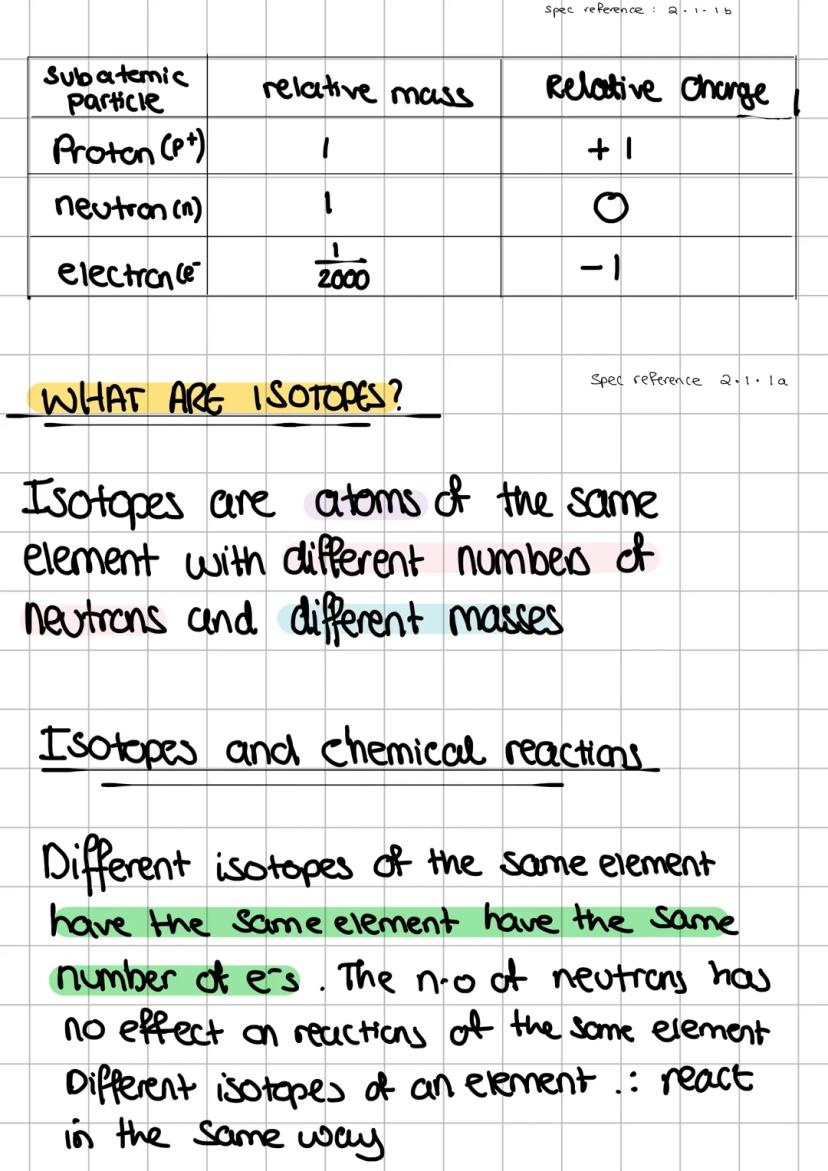 spec reference : 2.1.1b
Subatomic particle | relative mass | Relative Charge
Proton (p+) | 1 | +1
neutron (n) | 1 | 0
electron (e- | 1/2000 | -1
WHAT ARE ISOTOPES?
Spec reference 2.1.1a
Isotopes are atoms of the same
element with different numbers of
neutrons and different masses
Isotopes and chemical reactions
Different isotopes of the same element
have the same element have the same
number of e-s. The n.o of neutrons has
no effect on reactions of the same element
Different isotopes of an element .: react
in the same way